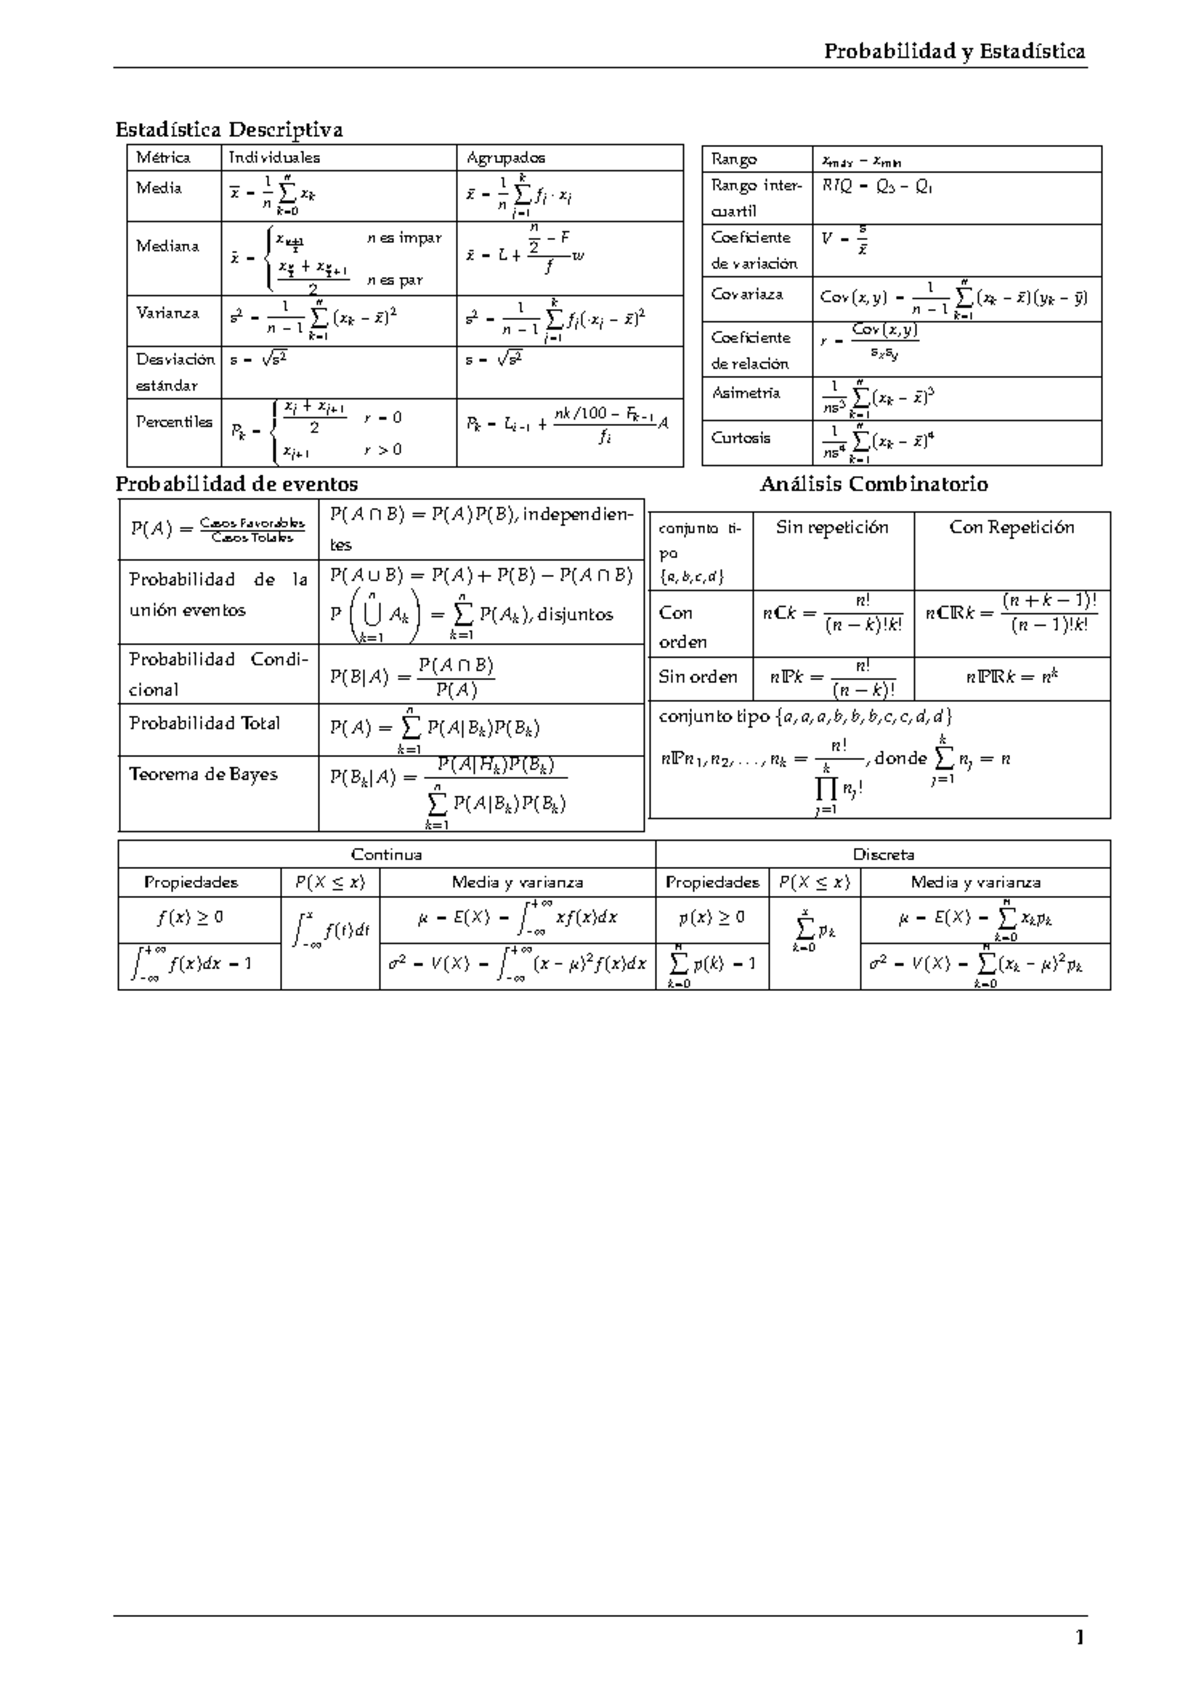 Probabilidad y Estadística
Estadística Descriptiva
Métrica Individuales Agrupados
Media x̄ = 1/n ∑_{k=0}^{n} x_k x̄ = 1/n ∑_{j=1}^{k} f_j · x_j
Mediana x̃ = { x_{(n+1)/2} n es impar; (x_{n/2} + x_{n/2+1})/2 n es par x̃ = L + (n/2 − F)/f w
Varianza s² = 1/(n − 1) ∑_{k=1}^{n} (x_k − x̄)² s² = 1/(n − 1) ∑_{j=1}^{k} f_j(·x_j − x̄)²
Desviación estándar s = √s² s = √s²
Percentiles P_k = { (x_j + x_{j+1})/2 r = 0; x_{j+1} r > 0 P_k = L_{i−1} + (nk/100 − F_{k−1})/f_i A
Rango x_máx − x_mín
Rango inter-
cuartil RIQ = Q₃ − Q₁
Coeficiente
de variación V = s/x̄
Covariaza Cov(x, y) = 1/(n − 1) ∑_{k=1}^{n} (x_k − x̄)(y_k − ȳ)
Coeficiente
de relación r = Cov(x, y)/(s_x s_y)
Asimetría 1/(ns³) ∑_{k=1}^{n} (x_k − x̄)³
Curtosis 1/(ns⁴) ∑_{k=1}^{n} (x_k − x̄)⁴
Probabilidad de eventos
P(A) = Casos Favorables/Casos Totales P(A ∩ B) = P(A)P(B), independien-
tes
Probabilidad de la
unión eventos P(A ∪ B) = P(A) + P(B) − P(A ∩ B)
P(⋃_{k=1}^{n} A_k) = ∑_{k=1}^{n} P(A_k), disjuntos
Probabilidad Condi-
cional P(B|A) = P(A ∩ B)/P(A)
Probabilidad Total P(A) = ∑_{k=1}^{n} P(A|B_k)P(B_k)
Teorema de Bayes P(B_k|A) = P(A|H_k)P(B_k) / ∑_{k=1}^{n} P(A|B_k)P(B_k)
Análisis Combinatorio
conjunto ti-
po
{a, b, c, d} Sin repetición Con Repetición
Con
orden nℂk = n!/((n − k)!k!) nℂℝk = (n + k − 1)!/((n − 1)!k!)
Sin orden nℙk = n!/(n − k)! nℙℝk = n^k
conjunto tipo {a, a, a, b, b, b, c, c, d, d}
nℙn₁, n₂, . . . , n_k = n!/∏_{j=1}^{k} n_j!, donde ∑_{j=1}^{k} n_j = n
Continua Discreta
Propiedades P(X ≤ x) Media y varianza Propiedades P(X ≤ x) Media y varianza
f(x) ≥ 0 ∫_{−∞}^{x} f(t)dt μ = E(X) = ∫_{−∞}^{+∞} xf(x)dx p(x) ≥ 0 ∑_{k=0}^{x} p_k μ = E(X) = ∑_{k=0}^{n} x_k p_k
∫_{−∞}^{+∞} f(x)dx = 1 σ² = V(X) = ∫_{−∞}^{+∞} (x − μ)² f(x)dx ∑_{k=0}^{n} p(k) = 1 σ² = V(X) = ∑_{k=0}^{n} (x_k − μ)² p_k
1